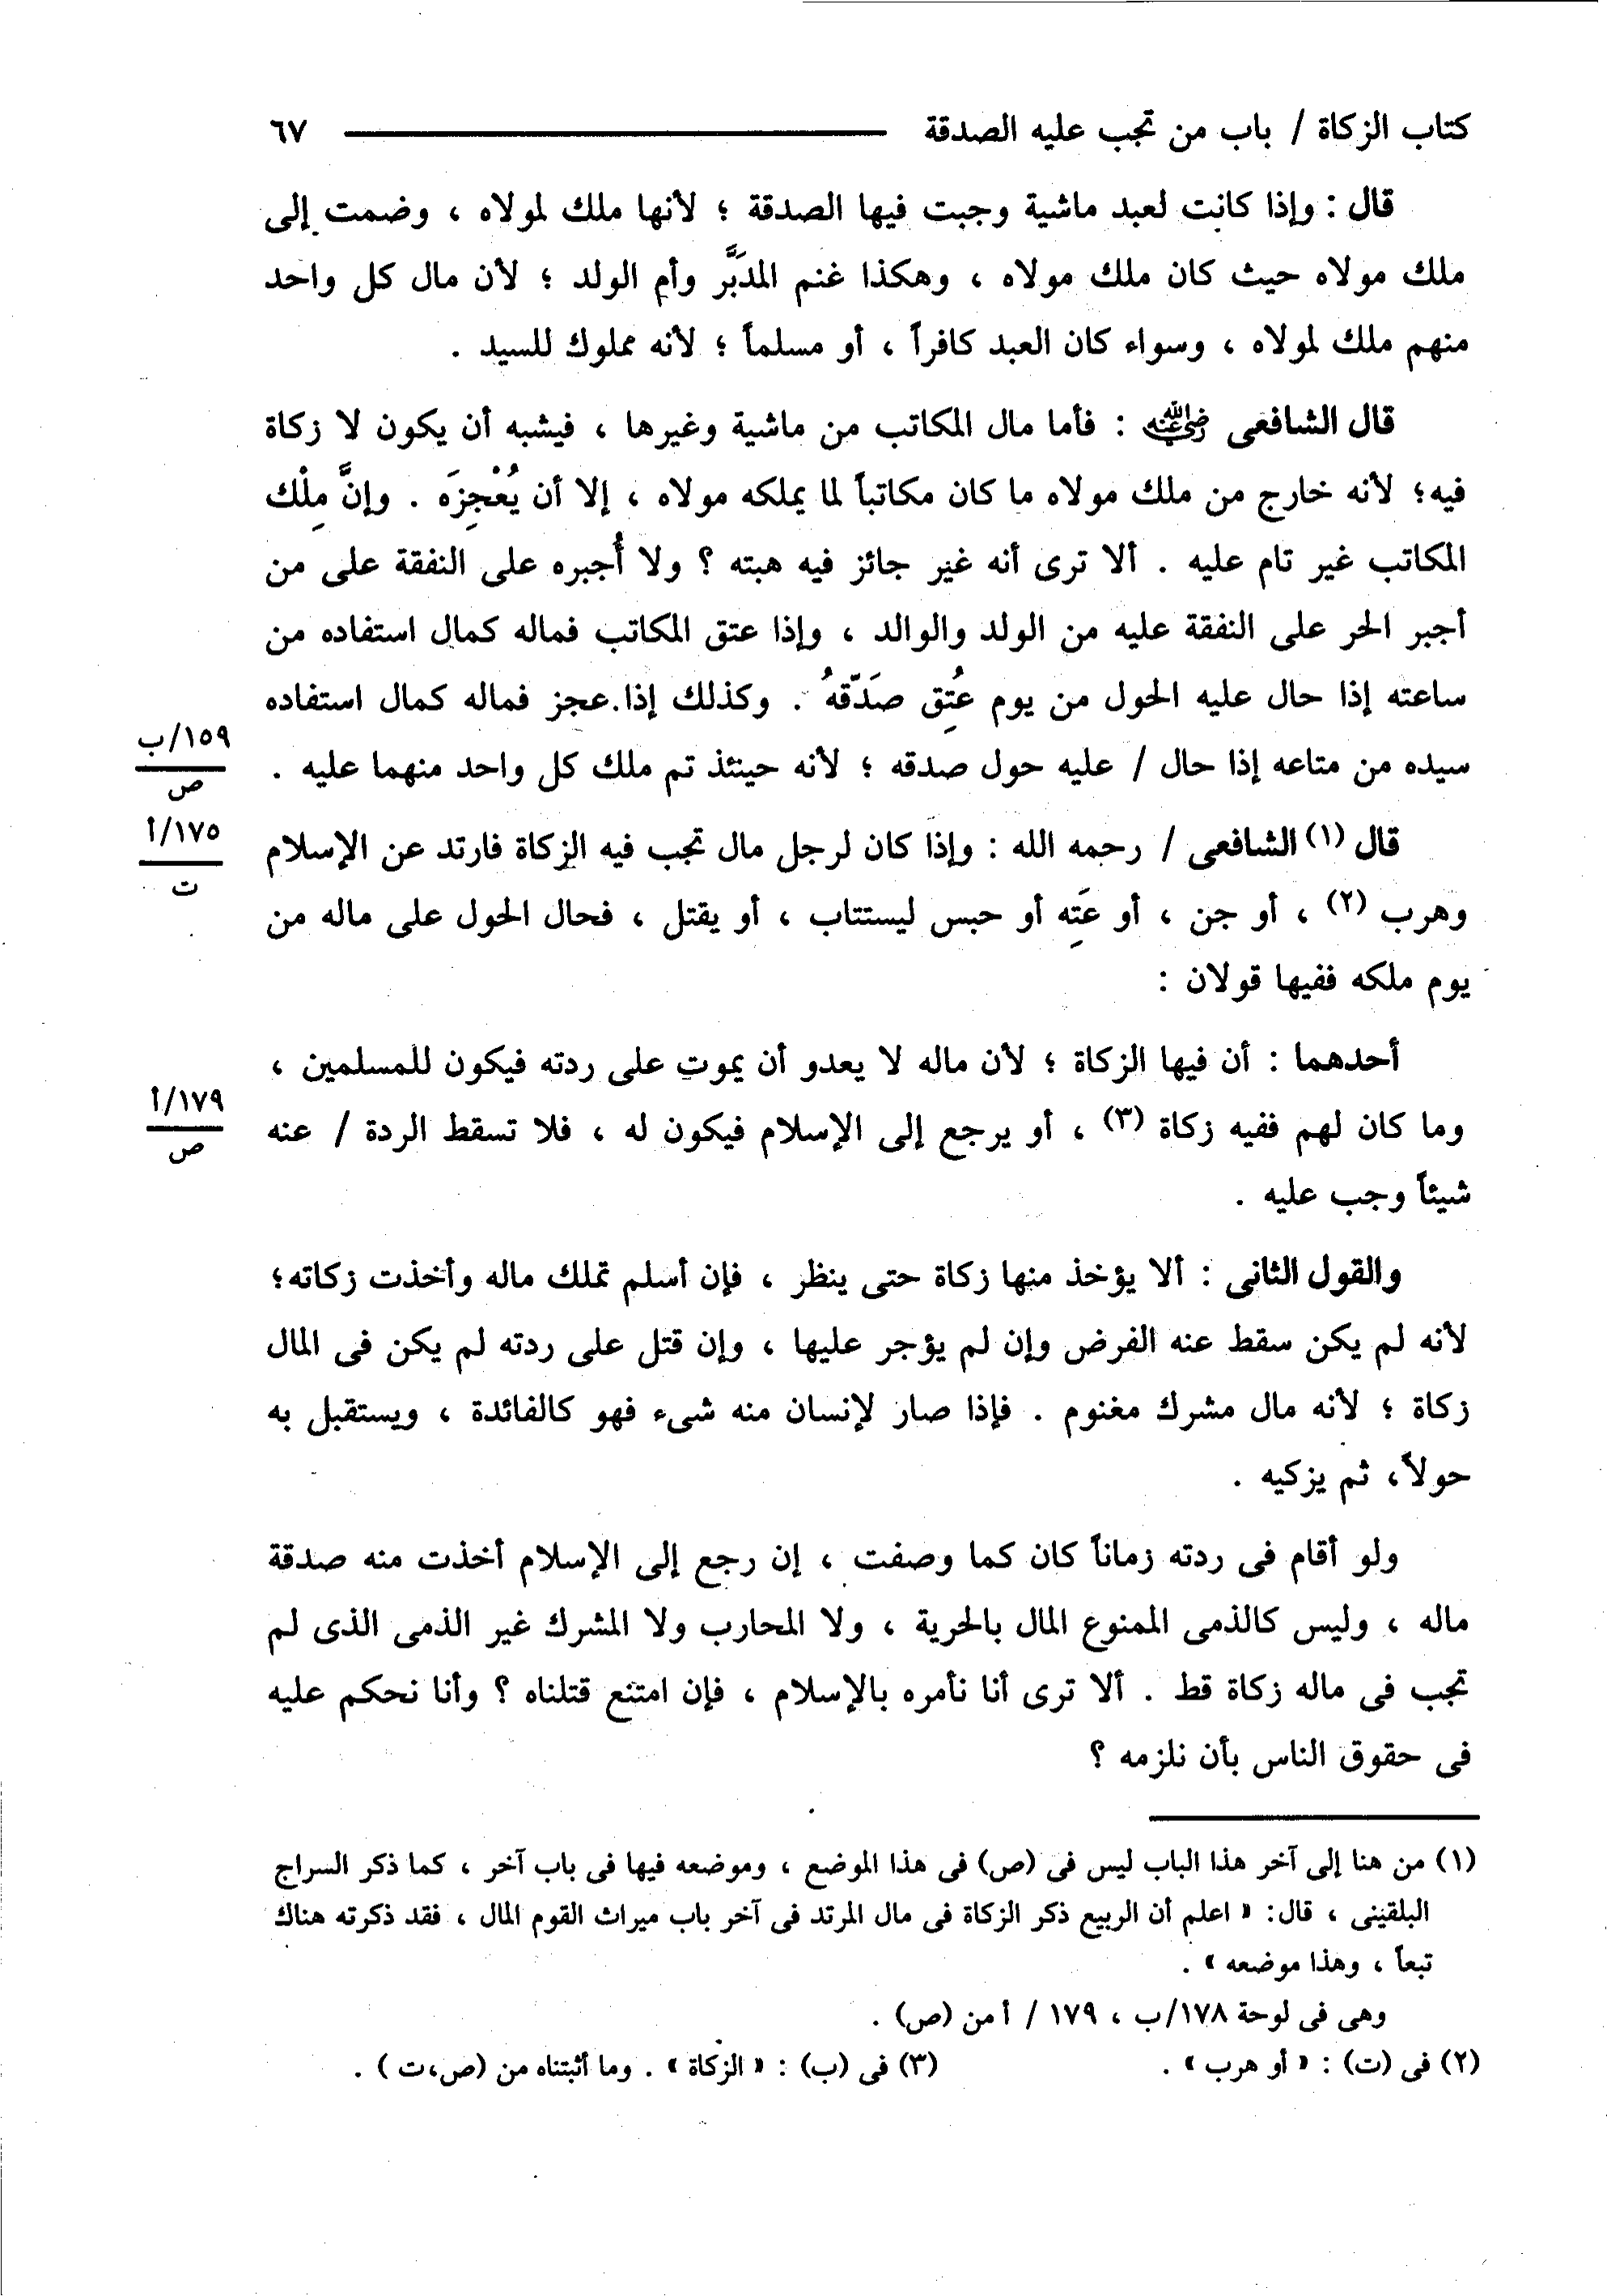 كتاب الزكاة / باب من تجب عليه الصدقة ٦٧
قال : وإذا كانت لعبد ماشية وجبت فيها الصدقة ؛ لأنها ملك لمولاه ، وضمت إلى
ملك مولاه حيث كان ملك مولاه ، وهكذا غنم المدَبَّر وأم الولد ؛ لأن مال كل واحد
منهم ملك لمولاه ، وسواء كان العبد كافراً ، أو مسلماً ؛ لأنه مملوك للسيد .
قال الشافعى رضي الله عنه : فأما مال المكاتب من ماشية وغيرها ، فيشبه أن يكون لا زكاة
فيه؛ لأنه خارج من ملك مولاه ما كان مكاتباً لما يملكه مولاه ، إلا أن يُعْجِزَه . وإنَّ مِلْك
المكاتب غير تام عليه . ألا ترى أنه غير جائز فيه هبته ؟ ولا أُجبره على النفقة على من
أجبر الحر على النفقة عليه من الولد والوالد ، وإذا عتق المكاتب فماله كمال استفاده من
ساعته إذا حال عليه الحول من يوم عُتِق صَدّقَهُ . وكذلك إذا عجز فماله كمال استفاده
١٥٩/ب
ص
سيده من متاعه إذا حال / عليه حول صدقه ؛ لأنه حينئذ تم ملك كل واحد منهما عليه .
١٧٥/أ
ت
قال (١) الشافعى / رحمه الله : وإذا كان لرجل مال تجب فيه الزكاة فارتد عن الإسلام
وهرب (٢) ، أو جن ، أو عَتِه أو حبس ليستتاب ، أو يقتل ، فحال الحول على ماله من
يوم ملكه ففيها قولان :
أحدهما : أن فيها الزكاة ؛ لأن ماله لا يعدو أن يموت على ردته فيكون للمسلمين ،
١٧٩/أ
ص
وما كان لهم ففيه زكاة (٣) ، أو يرجع إلى الإسلام فيكون له ، فلا تسقط الردة / عنه
شيئاً وجب عليه .
والقول الثانى : ألا يؤخذ منها زكاة حتى ينظر ، فإن أسلم تملك ماله وأخذت زكاته؛
لأنه لم يكن سقط عنه الفرض وإن لم يؤجر عليها ، وإن قتل على ردته لم يكن فى المال
زكاة ؛ لأنه مال مشرك مغنوم . فإذا صار لإنسان منه شىء فهو كالفائدة ، ويستقبل به
حولاً، ثم يزكيه .
ولو أقام فى ردته زماناً كان كما وصفت ، إن رجع إلى الإسلام أخذت منه صدقة
ماله ، وليس كالذمى الممنوع المال بالحرية ، ولا المحارب ولا المشرك غير الذمى الذى لم
تجب فى ماله زكاة قط . ألا ترى أنا نأمره بالإسلام ، فإن امتنع قتلناه ؟ وأنا نحكم عليه
فى حقوق الناس بأن نلزمه ؟
(١) من هنا إلى آخر هذا الباب ليس فى (ص) فى هذا الموضع ، وموضعه فيها فى باب آخر ، كما ذكر السراج
البلقينى ، قال: « اعلم أن الربيع ذكر الزكاة فى مال المرتد فى آخر باب ميراث القوم المال ، فقد ذكرته هناك
تبعاً ، وهذا موضعه » .
وهى فى لوحة ١٧٨/ب ، ١٧٩ / أ من (ص) .
(٢) فى (ت) : « أو هرب » . (٣) فى (ب) : « الزكاة » . وما أثبتناه من (ص،ت ) .